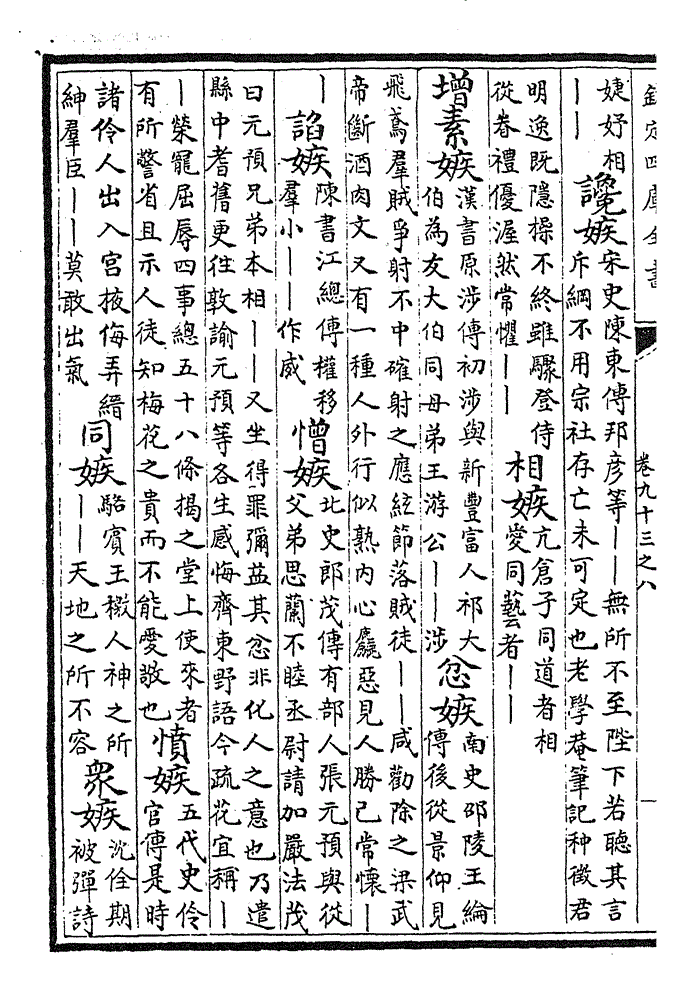 欽定四庫全書
卷九十三之八
婕妤相
——
讒嫉
宋史陳東傳邦彥等——無所不至陛下若聽其言
斥綱不用宗社存亡未可定也老學菴筆記种徵君
明逸既隱操不終雖驟登侍
從眷禮優渥然常懼——
相嫉
亢倉子同道者相
愛同藝者——
增素嫉
漢書原涉傳初涉與新豐富人祁大
伯為友大伯同母弟王游公——涉
忿嫉
南史邵陵王綸
傳後從景仰見
飛鳶羣賊爭射不中確射之應絃節落賊徒——咸勸除之梁武
帝斷酒肉文又有一種人外行似熟內心麤惡見人勝己常懷—
—
諂嫉
陳書江總傳權移
羣小——作威
憎嫉
北史郎茂傳有部人張元預與從
父弟思蘭不睦丞尉請加嚴法茂
曰元預兄弟本相——又坐得罪彌益其忿非化人之意也乃遣
縣中耆舊更往敦諭元預等各生感悔齊東野語今疏花宜稱—
—榮寵屈辱四事總五十八條揭之堂上使來者
有所警省且示人徒知梅花之貴而不能愛敬也
憤嫉
五代史伶
官傳是時
諸伶人出入宮掖侮弄縉
紳羣臣——莫敢出氣
同嫉
駱賓王檄人神之所
——天地之所不容
衆嫉
沈佺期
被彈詩